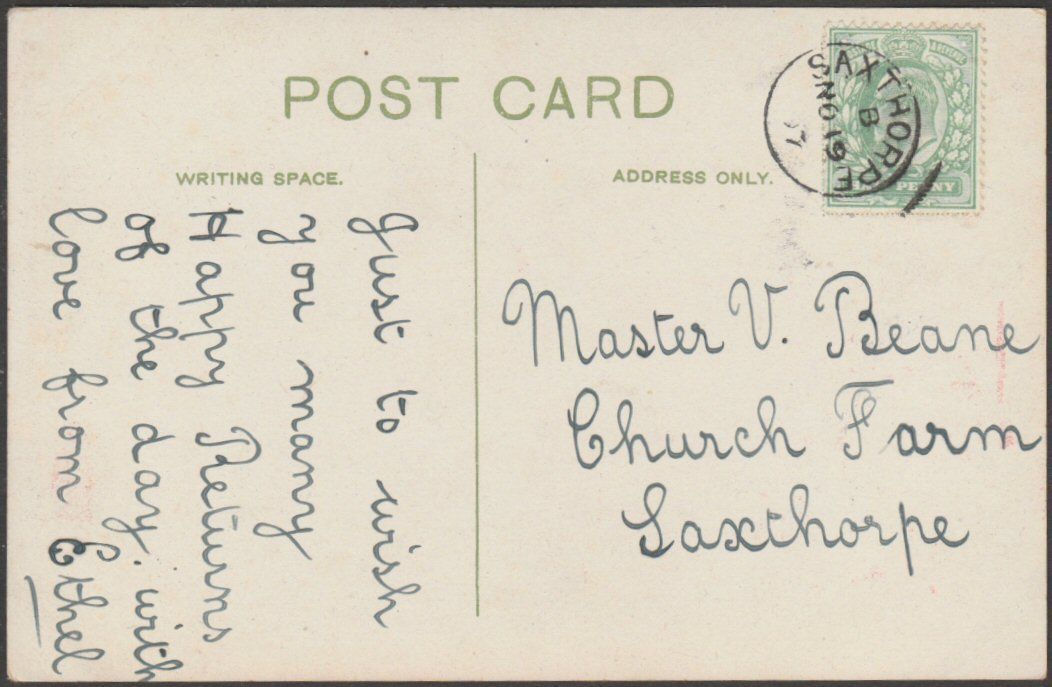 POST CARD
WRITING SPACE.
ADDRESS ONLY.
SAXTHORPE
B
NO 19
07
PENNY
Just to wish
you many
Happy Returns
of the day. with
love from Ethel
Master V. Beane
Church Farm
Saxthorpe